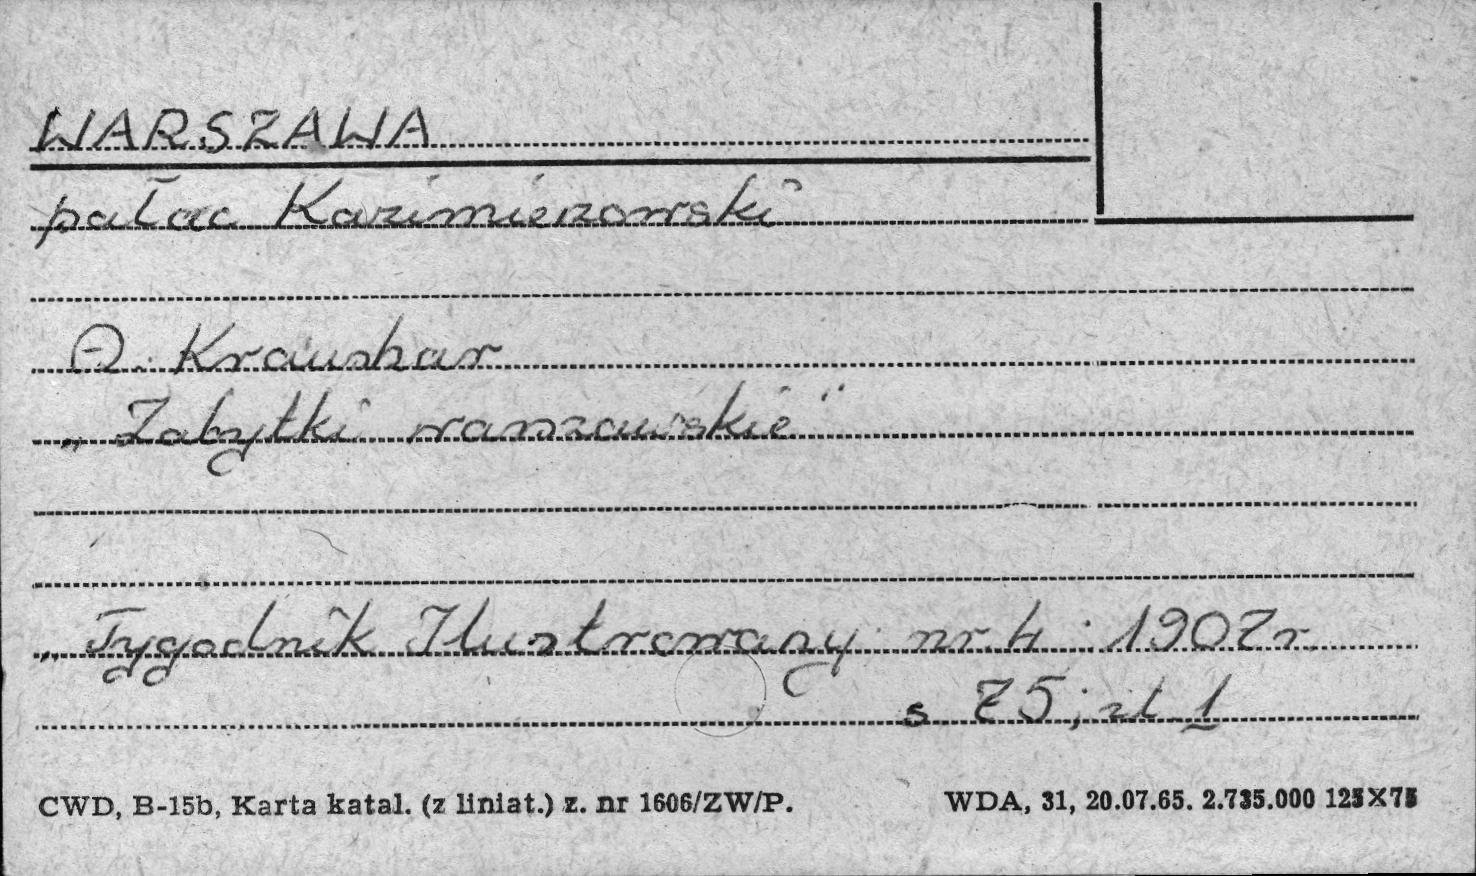 WARSZAWA
pałac Kazimierzowski
A. Kraushar
„Zabytki warszawskie"
„Tygodnik Ilustrowany nr. 4 : 1902 r.
s 75; il 1
CWD, B-15b, Karta katal. (z liniat.) z. nr 1606/ZW/P.
WDA, 31, 20.07.65. 2.735.000 125X75